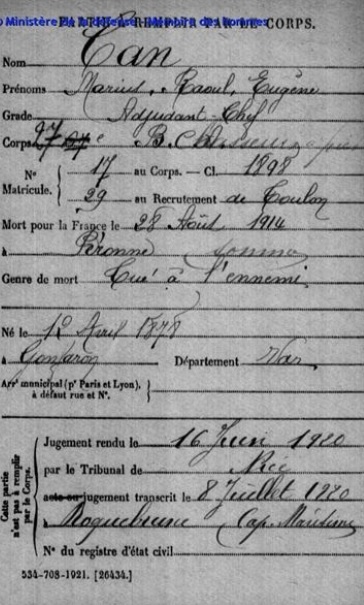 © Ministère de la défense - Mémoire des hommes
PARTIE À REMPLIR PAR LE CORPS.
Nom Tan
Prénoms Marius, Raoul, Eugène
Grade Adjudant-Chef
Corps 27e B. Chasseurs
N° 17 au Corps. — Cl. 1898
Matricule. 29 au Recrutement de Toulon
Mort pour la France le 28 Août 1914
à Péronne Somme
Genre de mort Tué à l'ennemi
Né le 10 Avril 1878
à Gonfaron Département Var
Arrt municipal (pr Paris et Lyon),
à défaut rue et N°.
Cette partie n'est pas à remplir par le Corps.
Jugement rendu le 16 Juin 1920
par le Tribunal de Nice
acte ou jugement transcrit le 8 Juillet 1920
à Roquebrune Cap
N° du registre d'état civil
534-708-1921. [26434.]